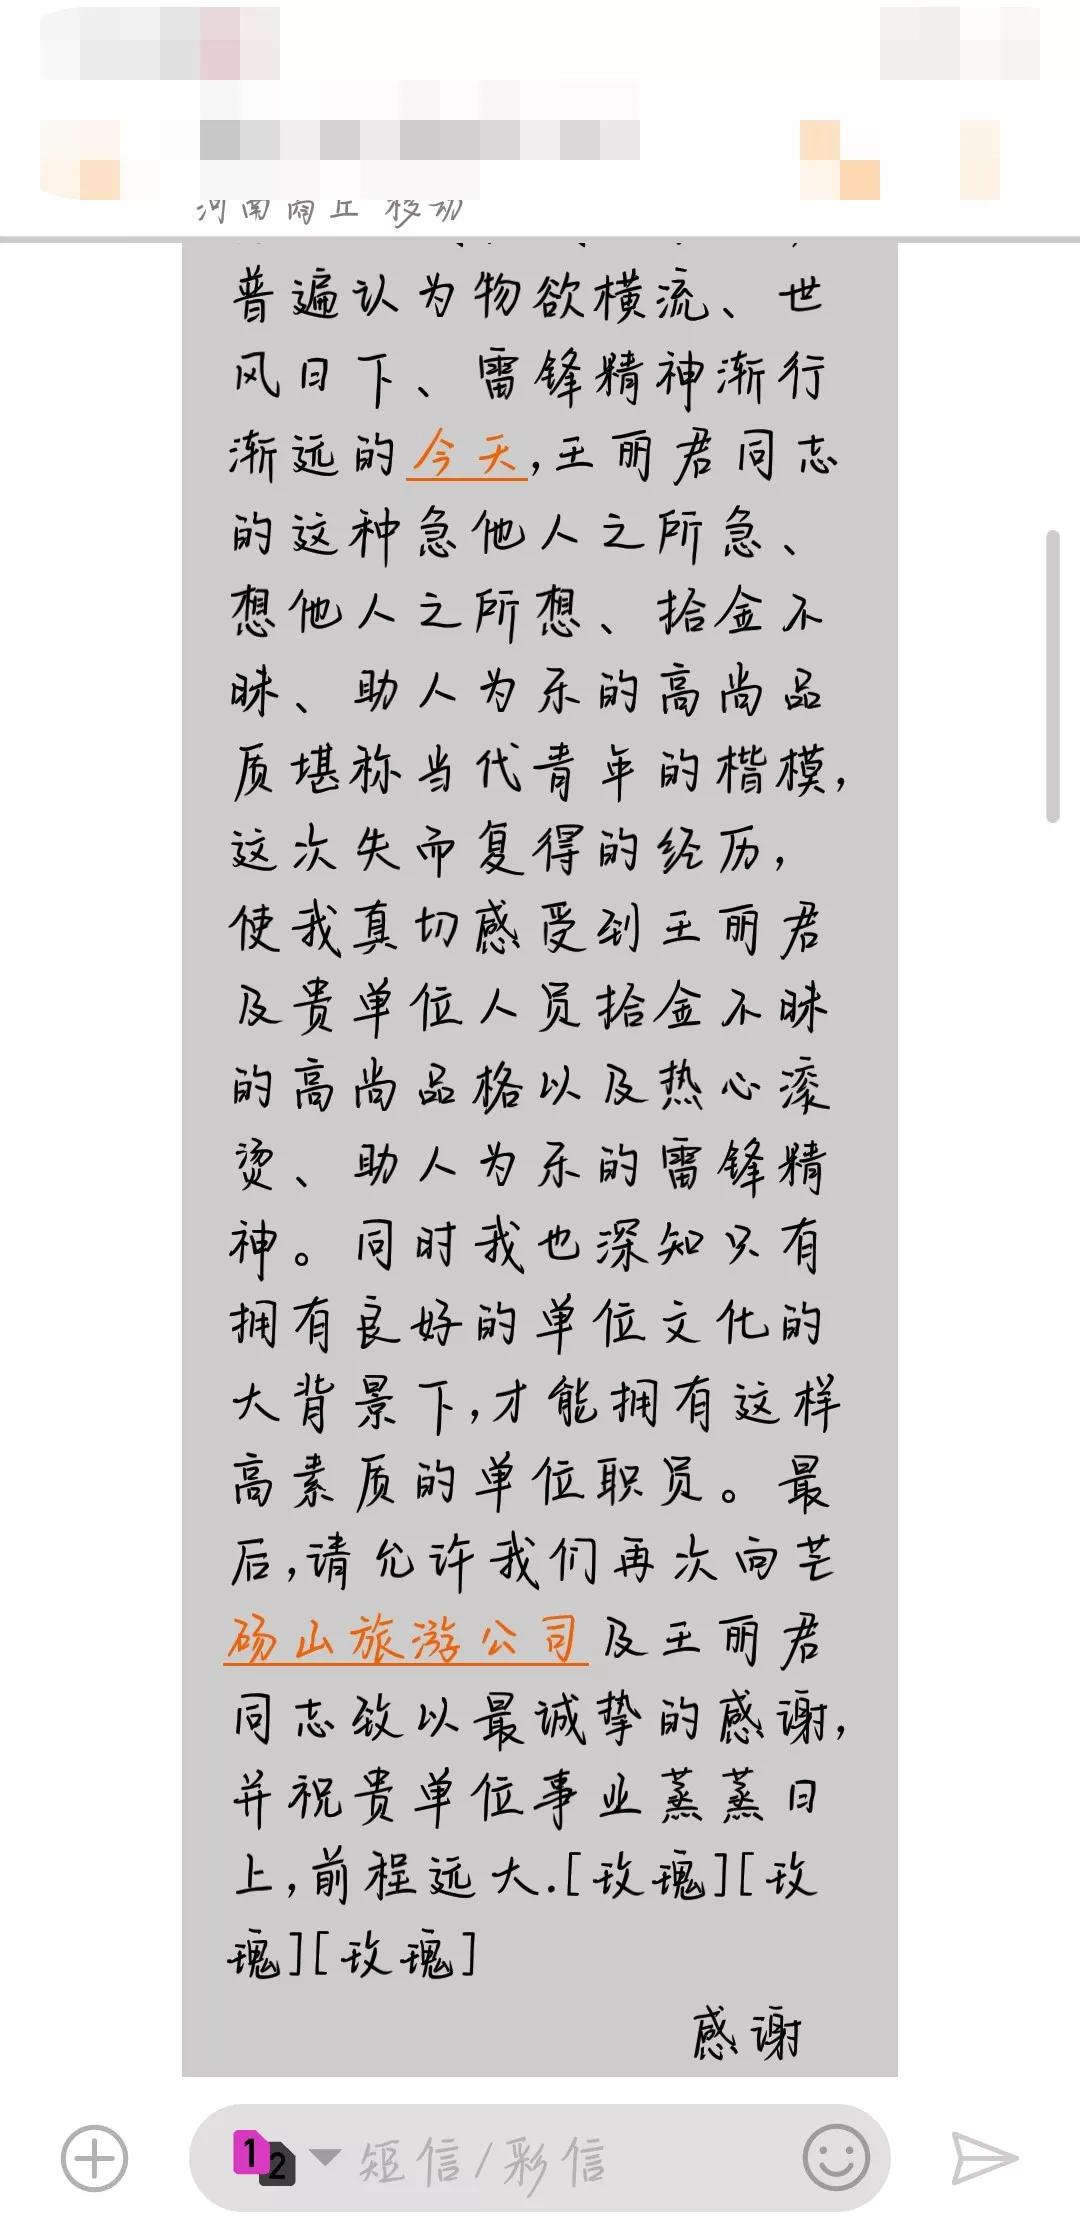 河南商丘 移动
普遍认为物欲横流、世
风日下、雷锋精神渐行
渐远的今天,王丽君同志
的这种急他人之所急、
想他人之所想、拾金不
昧、助人为乐的高尚品
质堪称当代青年的楷模,
这次失而复得的经历,
使我真切感受到王丽君
及贵单位人员拾金不昧
的高尚品格以及热心滚
烫、助人为乐的雷锋精
神。同时我也深知只有
拥有良好的单位文化的
大背景下,才能拥有这样
高素质的单位职员。最
后,请允许我们再次向芒
砀山旅游公司及王丽君
同志致以最诚挚的感谢,
并祝贵单位事业蒸蒸日
上,前程远大.[玫瑰][玫
瑰][玫瑰]
感谢
1 2 短信/彩信